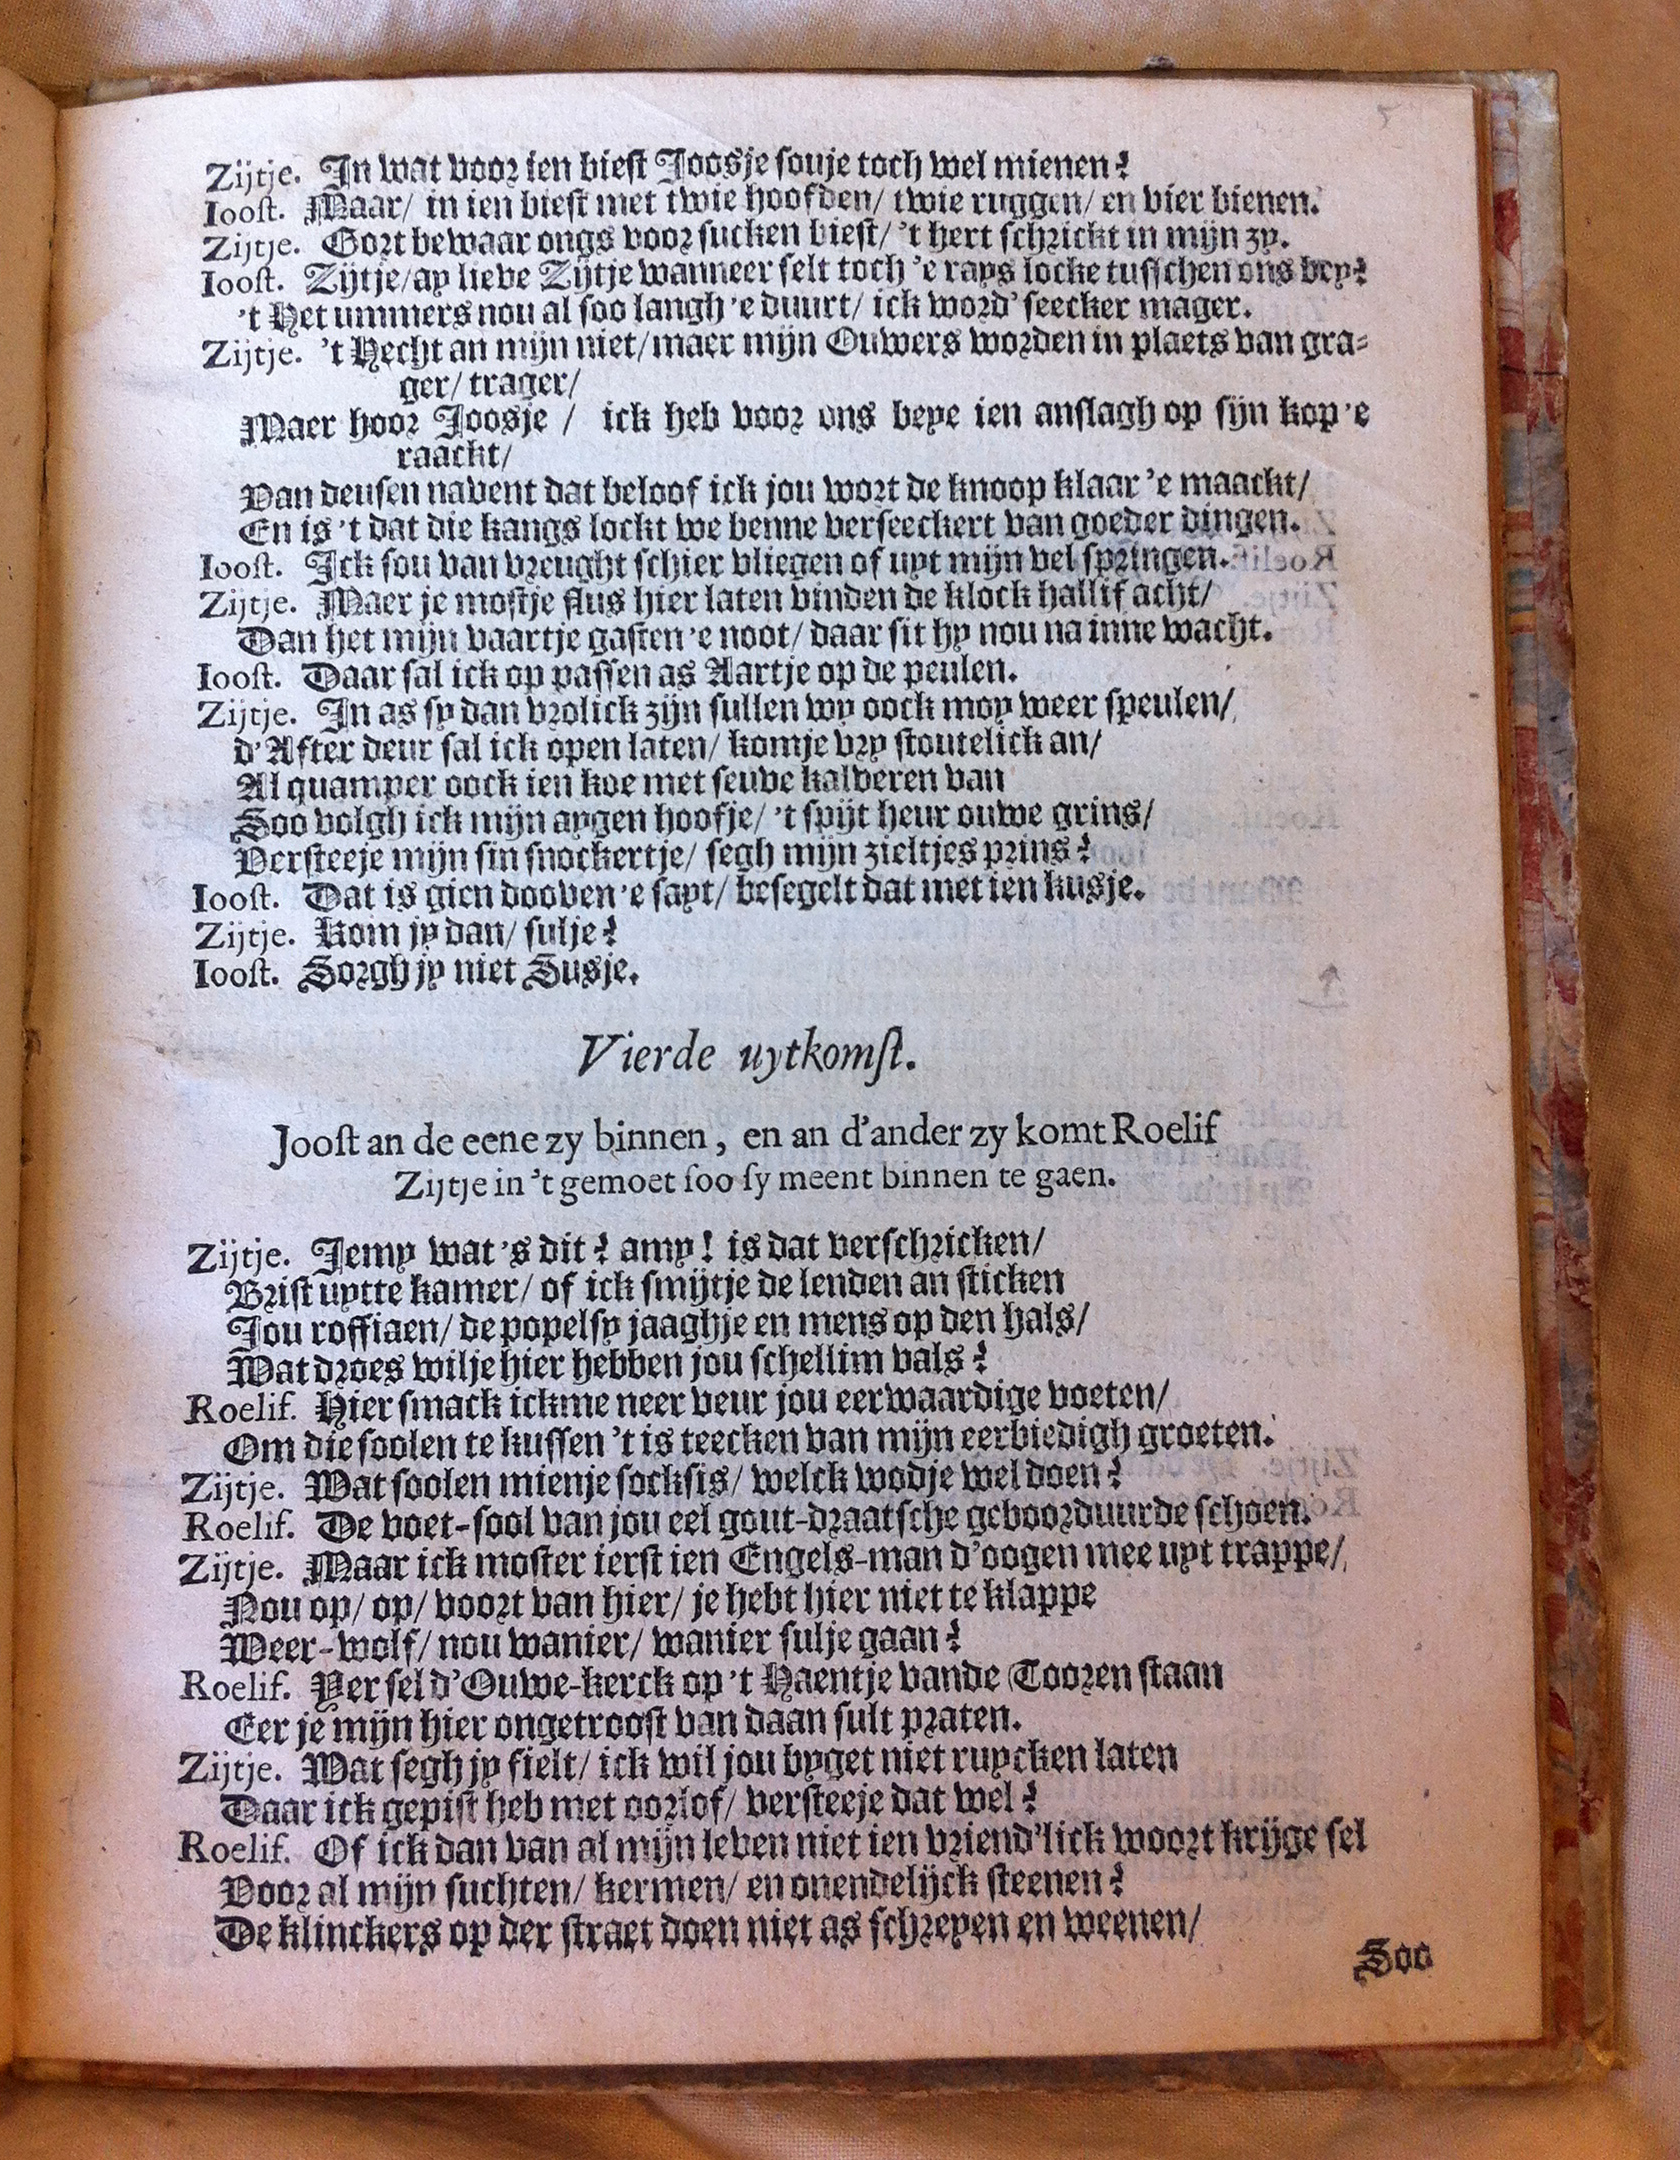 5
Zijtje. In wat voor ien biest Joosje souje toch wel mienen?
Ioost. Maar/ in ien biest met twie hoofden/ twie ruggen/ en vier bienen.
Zijtje. Gort bewaar ongs voor sucken biest/ 't hert schrickt in mijn zy.
Ioost. Zijtje/ ay lieve Zijtje wanneer selt toch 'e rays locke tusschen ons bey?
't Het ummers nou al soo langh 'e duurt/ ick word' seecker mager.
Zijtje. 't Hecht an mijn niet/ maer mijn Ouwers worden in plaets van gra-
ger/ trager/
Maer hoor Joosje / ick heb voor ons beye ien anslagh op sijn kop 'e
raackt/
Van deusen navent dat beloof ick jou wort de knoop klaar 'e maackt/
En is 't dat die kangs lockt we benne verseeckert van goeder dingen.
Ioost. Ick sou van vreught schier vliegen of uyt mijn vel springen.
Zijtje. Maer je mostje flus hier laten vinden de klock hallif acht/
Dan het mijn vaartje gasten 'e noot/ daar sit hy nou na inne wacht.
Ioost. Daar sal ick op passen as Aartje op de peulen.
Zijtje. In as sy dan vrolick zijn sullen wy oock moy weer speulen/
d'After deur sal ick open laten/ komje vry stoutelick an/
Al quamper oock ien koe met seuve kalveren van
Soo volgh ick mijn aygen hoofje/ 't spijt heur ouwe grins/
Versteeje mijn sin snockertje/ segh mijn zieltjes prins?
Ioost. Dat is gien dooven 'e sayt/ besegelt dat met ien kusje.
Zijtje. Kom jy dan/ sulje?
Ioost. Sorgh jy niet Susje.
Vierde uytkomst.
Joost an de eene zy binnen, en an d'ander zy komt Roelif
Zijtje in 't gemoet soo sy meent binnen te gaen.
Zijtje. Jemy wat 's dit? amy! is dat verschricken/
Brist uytte kamer/ of ick smijtje de lenden an sticken
Jou roffiaen/ de popelsy jaaghje en mens op den hals/
Wat droes wilje hier hebben jou schellim vals?
Roelif. Hier smack ickme neer veur jou eerwaardige voeten/
Om die soolen te kussen 't is teecken van mijn eerbiedigh groeten.
Zijtje. Wat soolen mienje socksis/ welck wodje wel doen?
Roelif. De voet-sool van jou eel gout-draatsche geboorduurde schoen.
Zijtje. Maar ick moster ierst ien Engels-man d'oogen mee uyt trappe/
Nou op/ op/ voort van hier/ je hebt hier niet te klappe
Weer-wolf/ nou wanier/ wanier sulje gaan?
Roelif. Yer sel d'Ouwe-kerck op 't Haentje vande Tooren staan
Eer je mijn hier ongetroost van daan sult praten.
Zijtje. Wat segh jy fielt/ ick wil jou byget niet ruycken laten
Daar ick gepist heb met oorlof/ versteeje dat wel?
Roelif. Of ick dan van al mijn leven niet ien vriend'lick woort krijge sel
Voor al mijn suchten/ kermen/ en onendelijck steenen?
De klinckers op der straet doen niet as schreyen en weenen/
Soo